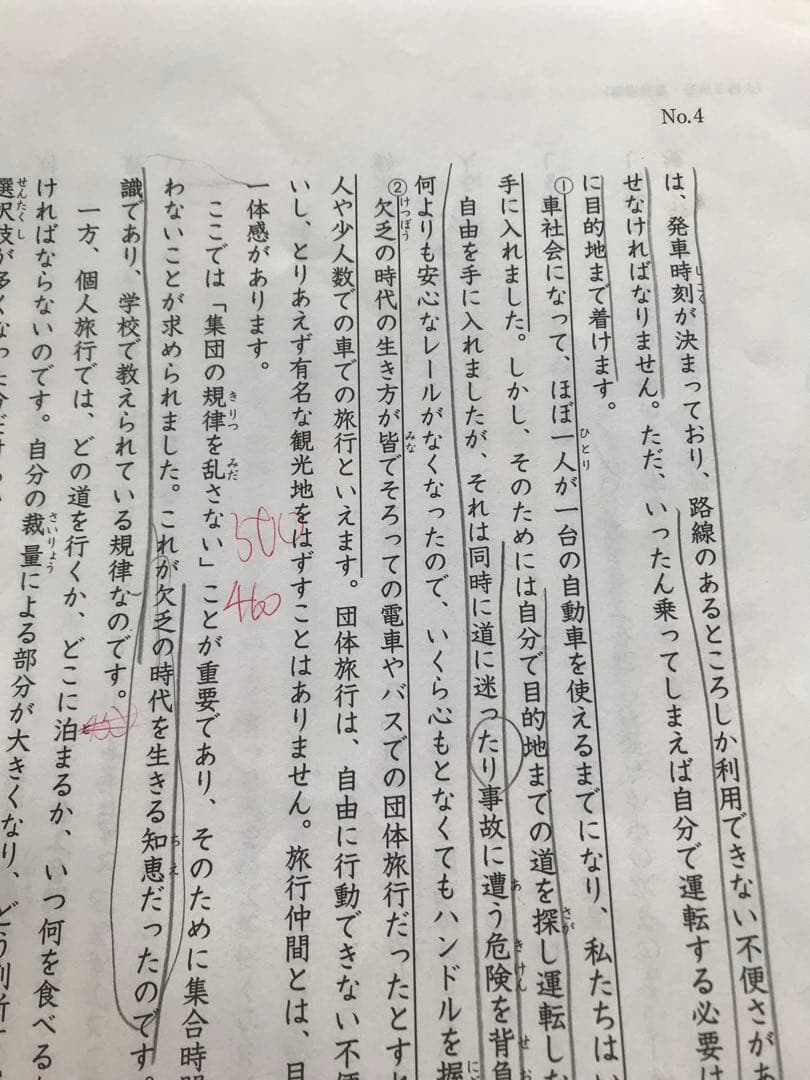 No.4
は、発車時刻が決まっており、路線のあるところしか利用できない不便さがあ
せなければなりません。ただ、いったん乗ってしまえば自分で運転する必要は
に目的地まで着けます。
①車社会になって、ほぼ一人が一台の自動車を使えるまでになり、私たちはい
手に入れました。しかし、そのためには自分で目的地までの道を探し運転しな
自由を手に入れましたが、それは同時に道に迷ったり事故に遭う危険を背負
何よりも安心なレールがなくなったので、いくら心もとなくてもハンドルを握
②欠乏の時代の生き方が皆でそろっての電車やバスでの団体旅行だったとすれ
人や少人数での車での旅行といえます。団体旅行は、自由に行動できない不便
いし、とりあえず有名な観光地をはずすことはありません。旅行仲間とは、目
一体感があります。
ここでは「集団の規律を乱さない」ことが重要であり、そのために集合時間
わないことが求められました。これが欠乏の時代を生きる知恵だったのです。
識であり、学校で教えられている規律なのです。
一方、個人旅行では、どの道を行くか、どこに泊まるか、いつ何を食べるか
ければならないのです。自分の裁量による部分が大きくなり、どう判断す
選択肢が多くなった分だけ
500
460